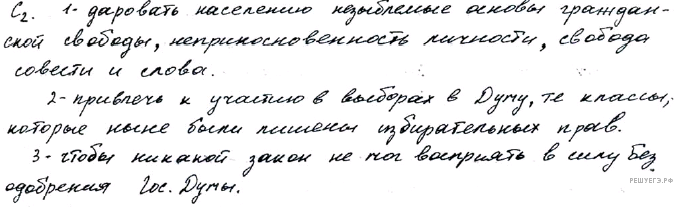 С2. 1- даровать населению незыблемые основы граждан-
ской свободы, неприкосновенность личности, свобода
совести и слова.
2- привлечь к участию в выборах в Думу, те классы,
которые ныне были лишены избирательных прав.
3- чтобы никакой закон не мог восприять в силу без
одобрения Гос. Думы.
РЕШУЕГЭ.РФ